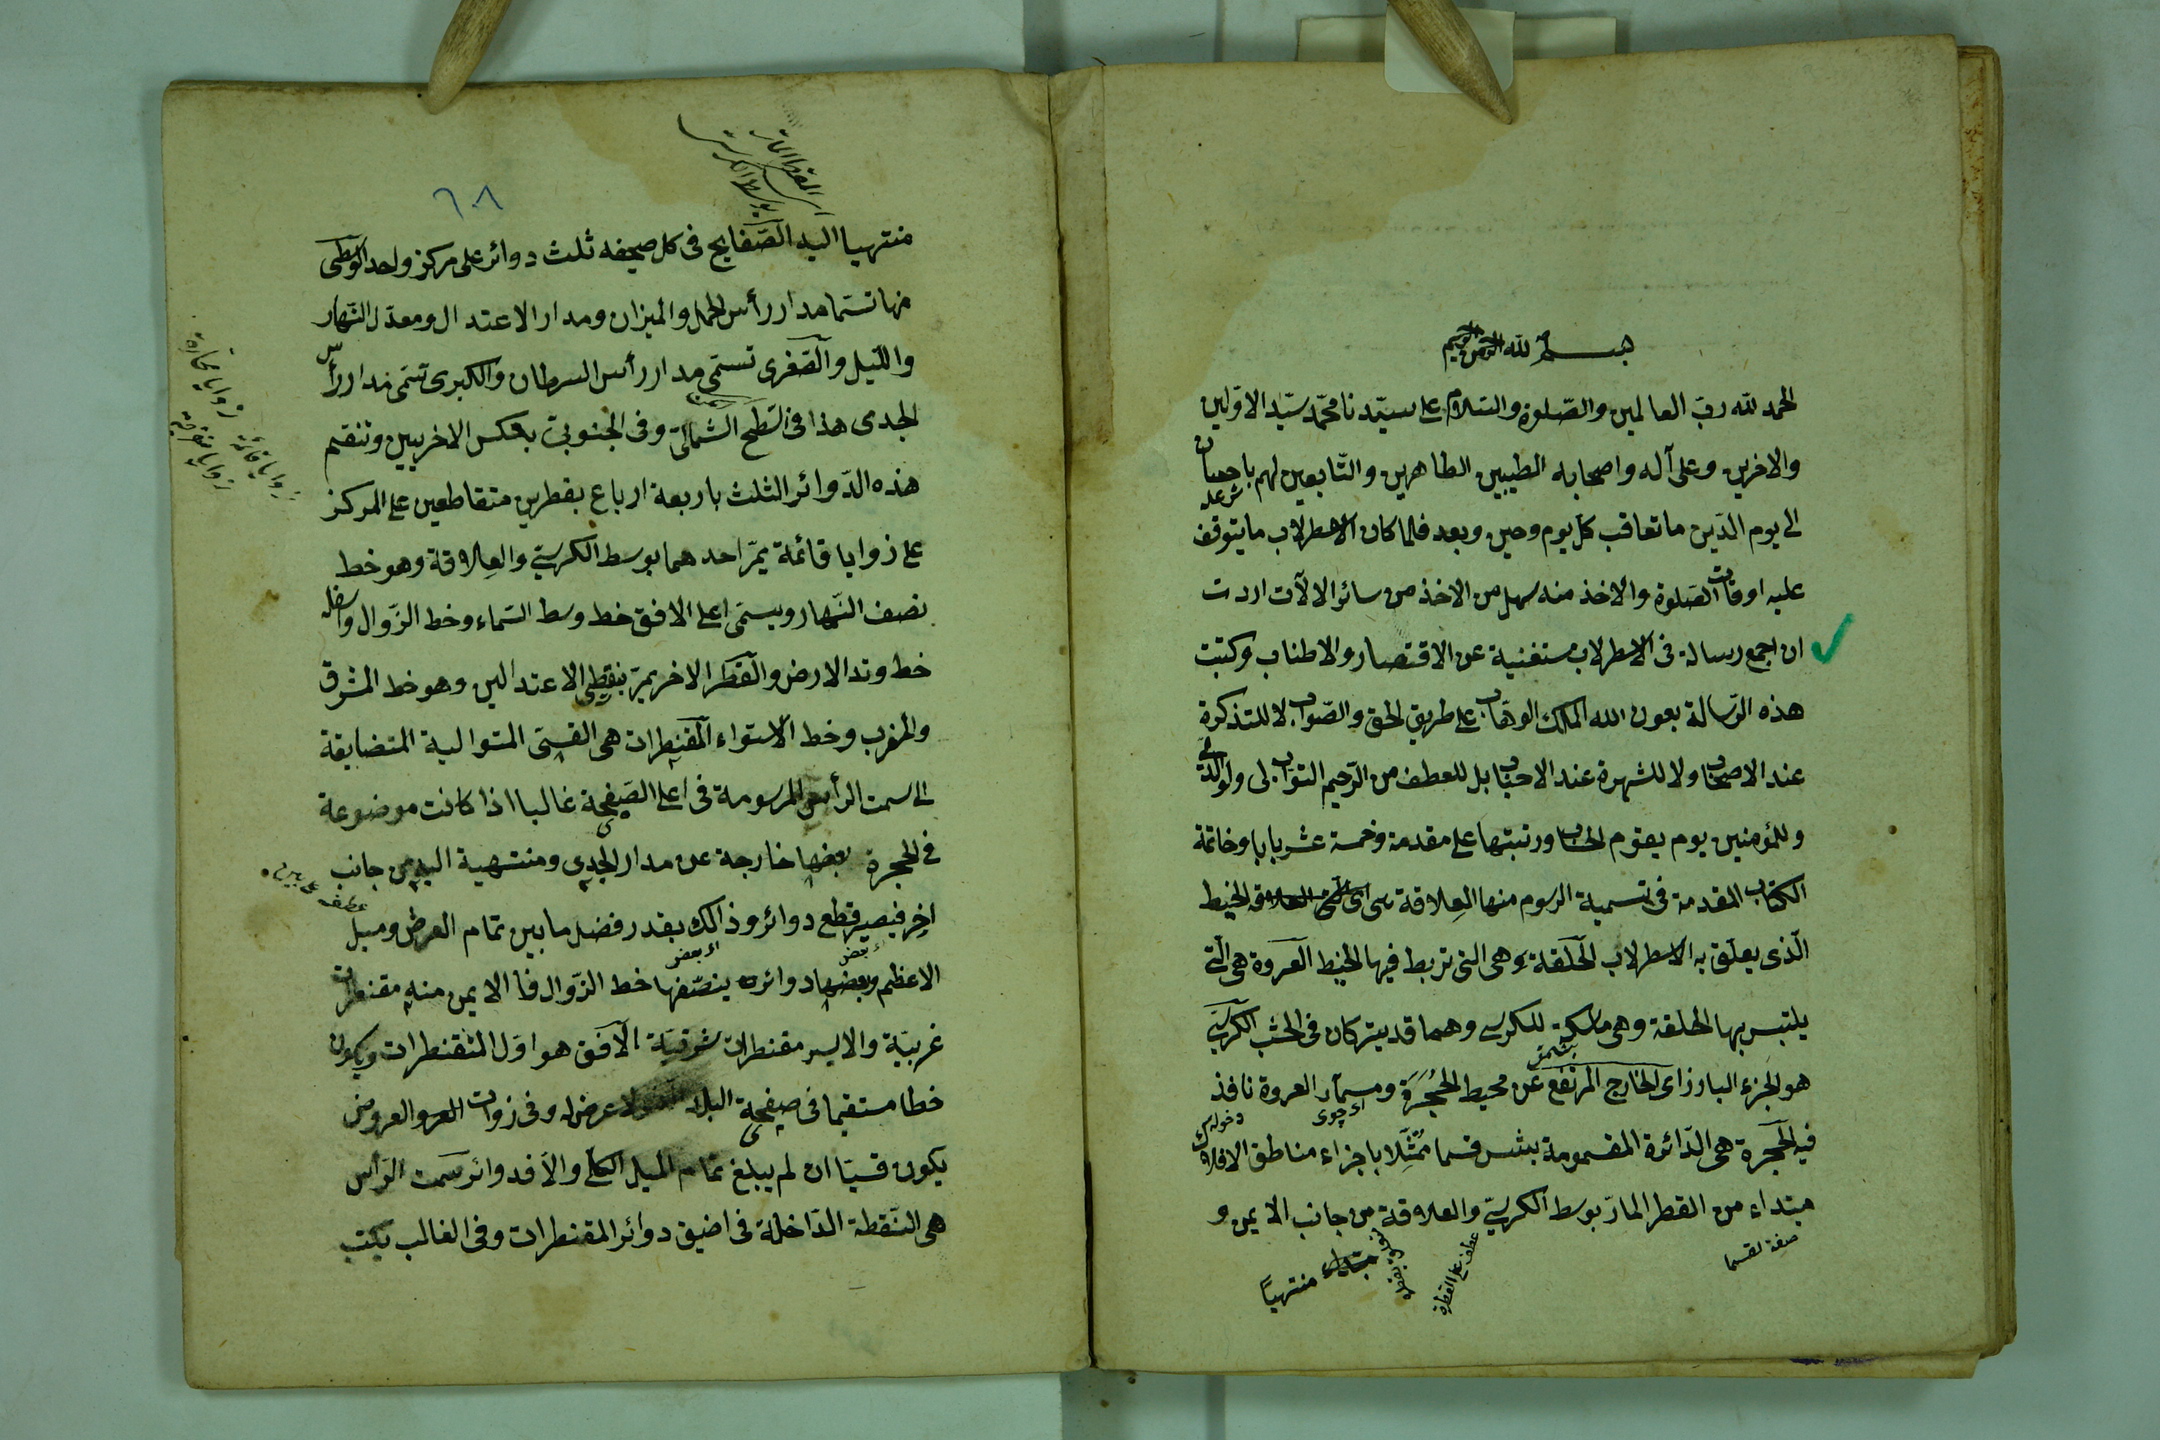 بسم الله الرحمن الرحيم
الحمد لله ربّ العالمين والصّلوة والسّلام على سيّدنا محمّد سيّد الاوّلين
والاخرين وعلى آله واصحابه الطيبين الطاهرين والتّابعين لهم باحسان
الى يوم الدّين ما تعاقب كلّ يوم وحين وبعد فلما كان الاسطرلاب ما يتوقف
شرعا
عليه اوقات الصّلوة والاخذ منه سهل من الاخذ من سائر الالآت اردت
ان اجمع رسالة فى الاسطرلاب مستغنية عن الاقتصار والاطناب وكتبت
هذه الرّسالة بعون الله الملك الوهّاب على طريق الحق والصّواب لا للتذكرة
عند الاصحاب ولا للشهرة عند الاحباب بل للعطف من الرّحيم التوّاب لى ولوالدىّ
وللمؤمنين يوم يقوم الحساب ورتبتها على مقدمة وخمسة عشر بابا وخاتمة
الكتاب المقدمة فى تسمية الرسوم منها العِلاقة الخيط
الّذى يعلّق به الاسطرلاب الحلقة وهى التى تربط فيها الخيط العروة هى الّتى
يلتبس بها الحلقة وهى ماسكة للكرسى وهما قد يتركان فى الخشب الكرسىّ
هو الجزء البارز اى الخارج المرتفع عن محيط الحُجْرَة ومسمار العروة نافذ
فيه الحجرة هى الدّائرة المقسومة بشس قسما مُمَثَّلا باجزاء مناطق الافلاك
مبتداء من القطر المارّ بوسط الكرسىّ والعلاقة من جانب الايمن و
صفة لقسما
عطف على القطر
مبتداء منتهيًا
٦٠٨
منتهيا اليه الصّفايح فى كل صحيفه ثلث دوائر على مركز واحد الوسطى
منها تسمّا مدار رأس الحمل والميزان ومدار الاعتدال ومعدّل النّهار
واللّيل والصّغرى تسمّى مدار رأس السرطان والكبرى تسمّى مدار رأس
الجدى هذا فى السّطح الشّمالىّ وفى الجنوبىّ بعكس الاخريين وتنقسم
هذه الدّوائر الثلث باربعة ارباع بقطرين متقاطعين على المركز
على زوايا قائمة يمّر احدهما بوسط الكرسىّ والعِلاقة وهو خط
نصف النّهار ويسمّى اعلى الافق خط وسط السّماء وخط الزّوال واسفله
خط وتد الارض والقطر الاخر يمرّ بنقطتى الاعتدالين وهو خط المشرق
والمغرب وخط الاستواء المقنطرات هى القسىّ المتوالية المتضايقة
الى سمت الرأس المرسومة فى اعلى الصّفيحة غالبا اذا كانت موضوعة
فى الحجرة بعضها خارجة عن مدار الجدى ومنتهية اليه من جانب
اخر فيصير قطع دوائر وذالك بقدر فضل ما بين تمام العرض وميل
الاعظم وبعضها دوائر ينصّفها خط الزّوال فا الايمن منه مقنطرات
غربيّة والايسر مقنطرات شرقيّة الافق هو اوّل المقنطرات ويكون
خطا مستقيما فى صفيحة البلد عرض له وفى زوات العروالعروض
يكون قسيّا ان لم يبلغ تمام الميل الكلّى والّا فدوائر سمت الرّأس
هى النّقطة الدّاخلة فى اضيق دوائر المقنطرات وفى الغالب يكتب
زوايا حادة
زوايا قائمة
زوايا منفرجة